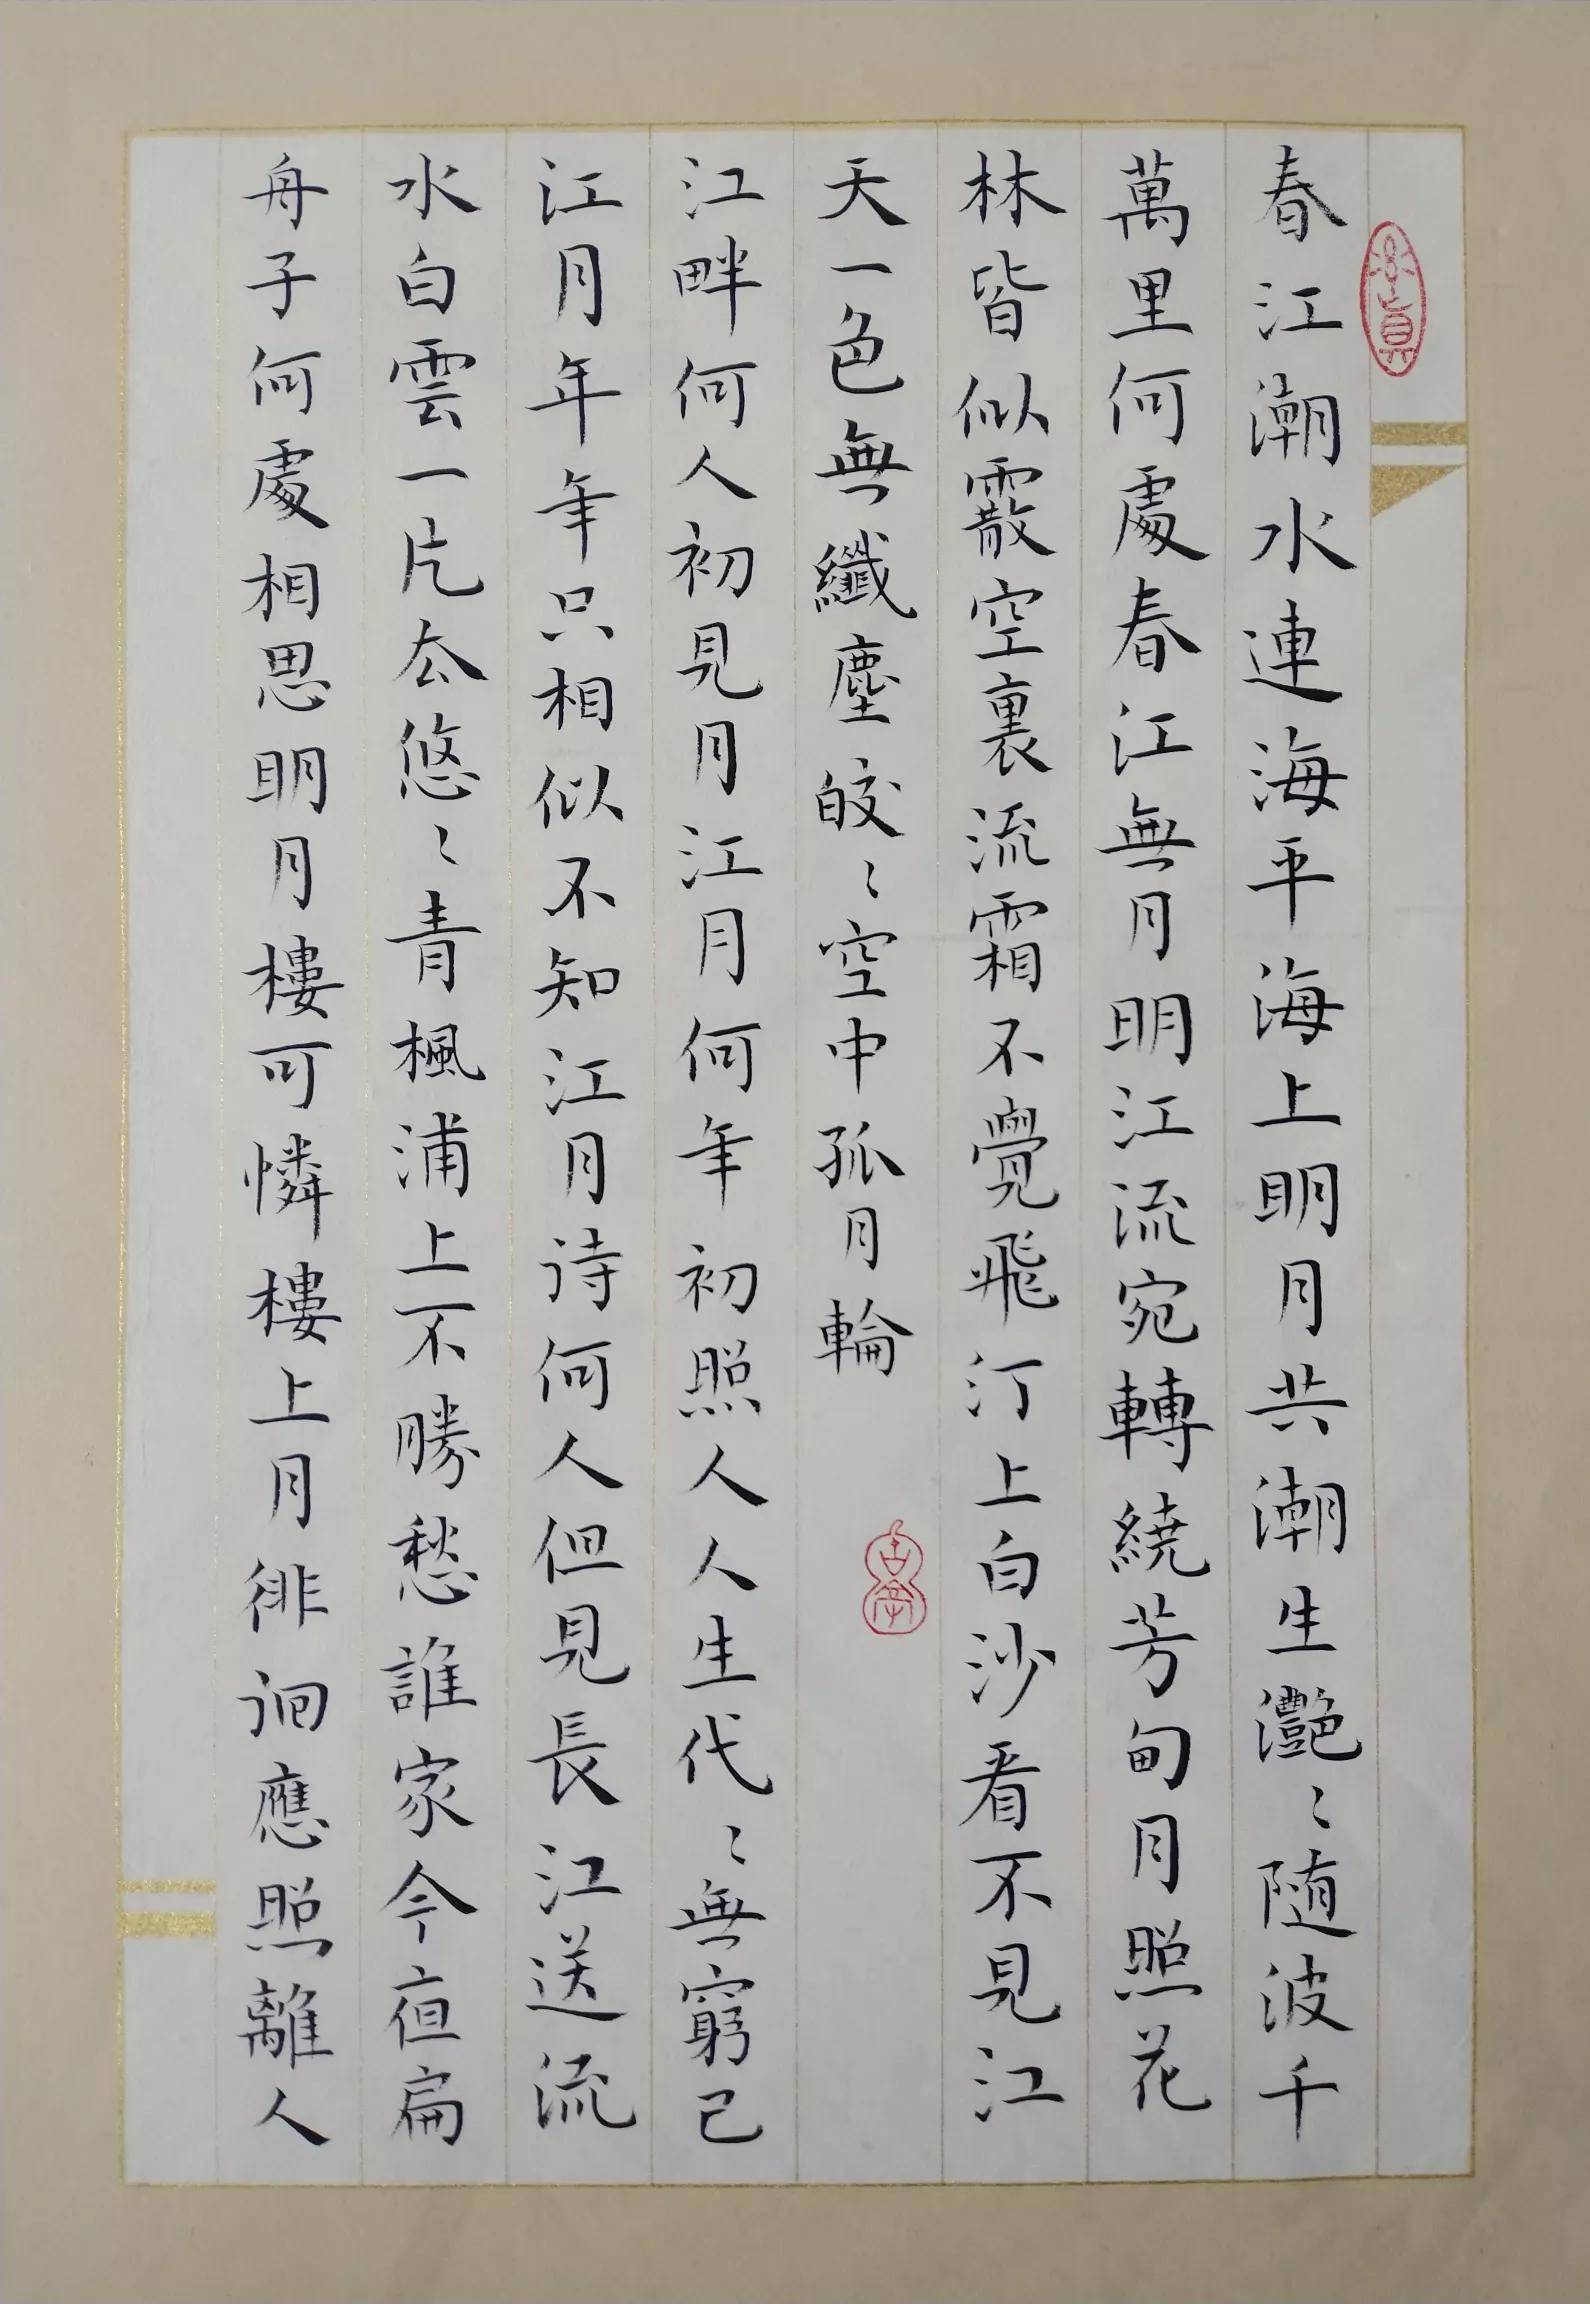 春江潮水連海平海上明月共潮生灧〻随波千
萬里何處春江無月明江流宛轉繞芳甸月照花
林皆似霰空裏流霜不覺飛汀上白沙看不見江
天一色無纖塵皎〻空中孤月輪
江畔何人初見月江月何年初照人人生代〻無窮已
江月年年只相似不知江月待何人但見長江送流
水白雲一片厺悠〻青楓浦上不勝愁誰家今夜扁
舟子何處相思明月樓可憐樓上月徘徊應照離人